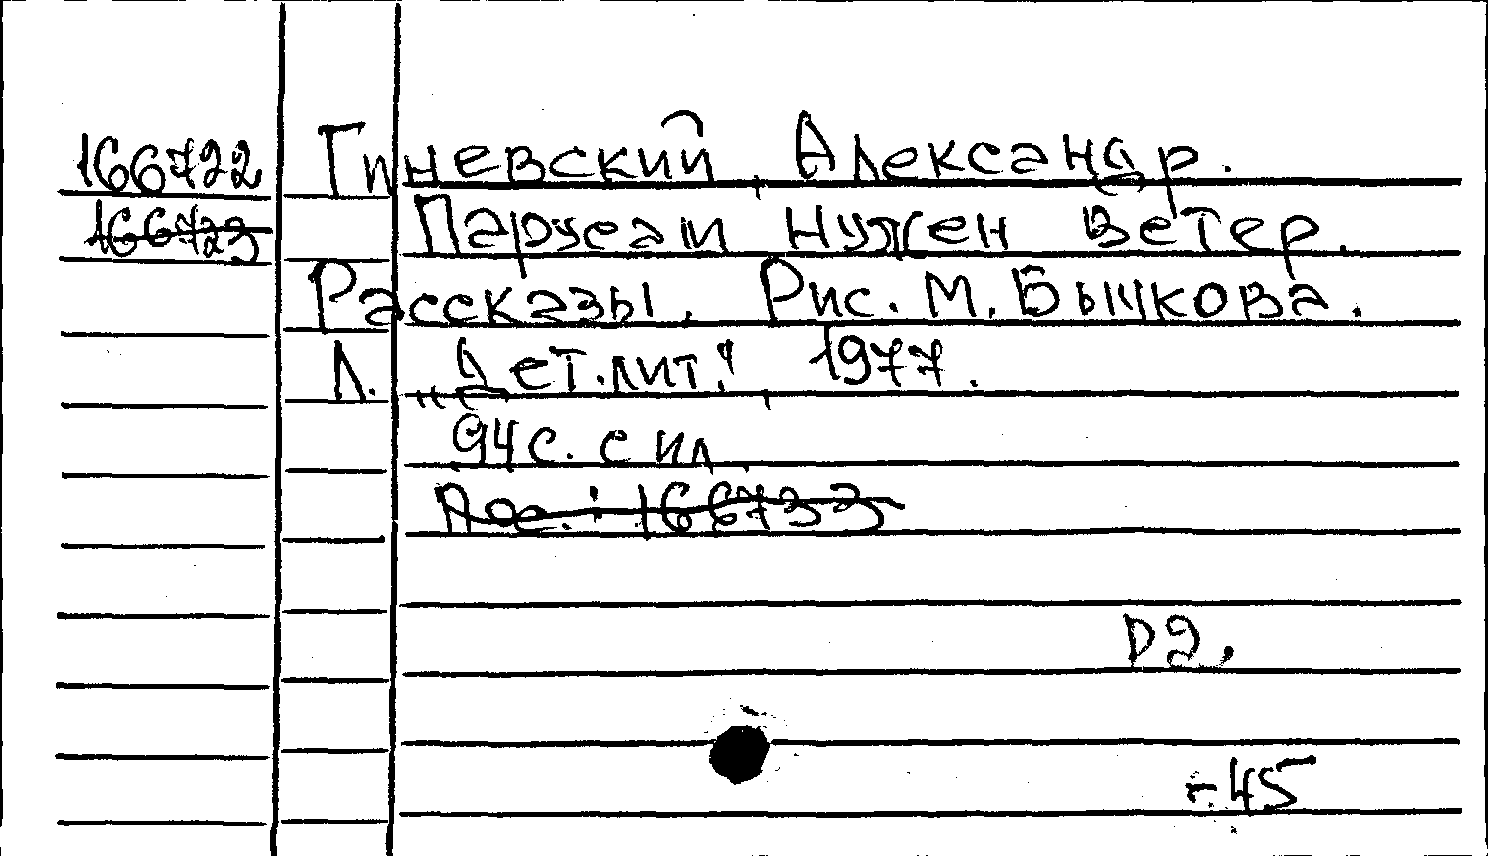 166722 Гиневский, Александр.
166723 Парусам нужен ветер.
Рассказы. Рис. М. Бычкова.
Л. „Дет. лит.", 1977.
94 с. с ил.
166733
D2.
-.45